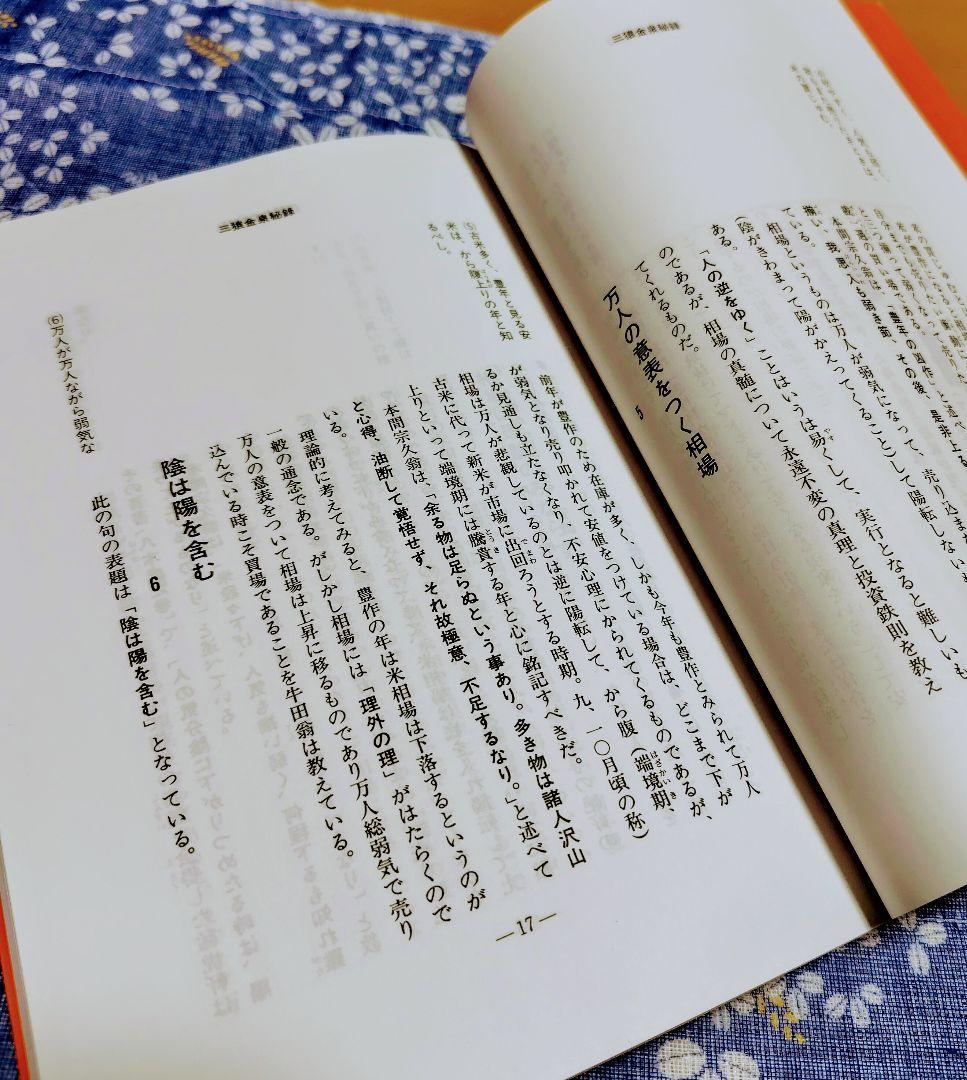 三猿金泉秘録
描い。我思入も弱き節、
相場というものは万人が弱気になって、売り込まれ
ている。
(陰がきわまって陽がかえってくることとして陽転しないも
ある。
「人の逆をゆく」ことはいうは易くして、実行となると難しいも
のであるが、相場の真髄について永遠不変の真理と投資鉄則を教え
てくれるものだ。
万人の意表をつく相場
5
三猿金泉秘録
⑤古米多く、豊年と見る安
米は、から腹上りの年と知
るべし。
前年が豊作のため在庫が多く、しかも今年も豊作とみられて万人
が弱気となり売り叩かれて安値をつけている場合は、どこまで下が
るか見通しも立たなくなり、不安心理にかられてくるものであるが、
相場は万人が悲観しているのとは逆に陽転して、から腹(端境期、
古米に代って新米が市場に出回ろうとする時期。九、一〇月頃の称)
上りといって端境期には騰貴する年と心に銘記すべきだ。
本間宗久翁は、「余る物は足らぬという事あり。多き物は諸人沢山
と心得、油断して覚悟せず、それ故極意、不足するなり。」と述べて
いる。
理論的に考えてみると、豊作の年は米相場は下落するというのが
一般の通念である。がしかし相場には「理外の理」がはたらくので
万人の意表をついて相場は上昇に移るものであり万人総弱気で売り
込んでいる時こそ買場であることを牛田翁は教えている。
陰は陽を含む
6
⑥万人が万人ながら弱気な
此の句の表題は「陰は陽を含む」となっている。
—17—